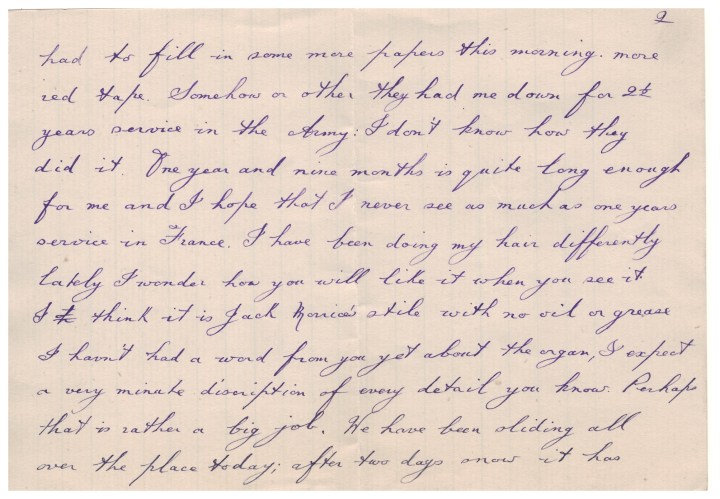 9
had to fill in some more papers this morning. more
red tape. Somehow or other they had me down for 2½
years service in the Army: I don't know how they
did it. One year and nine months is quite long enough
for me and I hope that I never see as much as one years
service in France. I have been doing my hair differently
lately I wonder how you will like it when you see it
I think it is Jack stile with no oil or grease
I havn't had a word from you yet about the organ, I expect
a very minute discription of every detail you know. Perhaps
that is rather a big job. We have been sliding all
over the place today; after two days snow it has